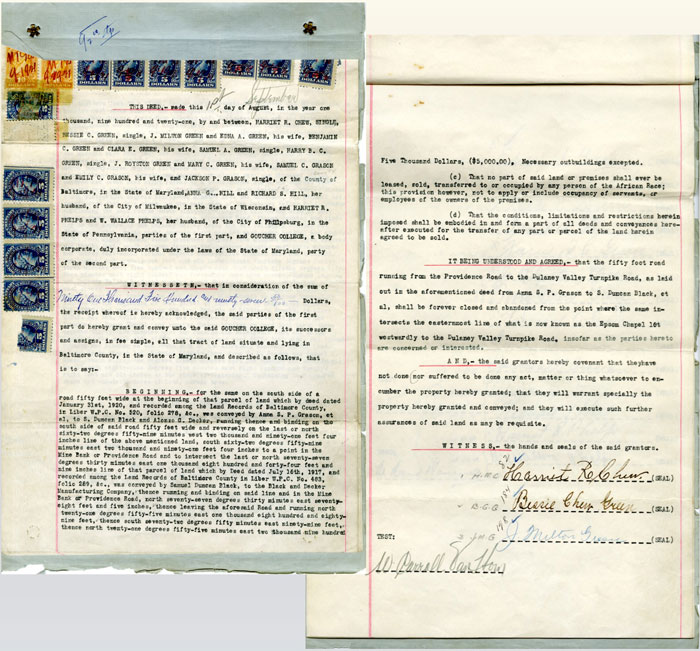 5 DOLLARS 5 DOLLARS 5 DOLLARS 5 DOLLARS 5 DOLLARS 5 DOLLARS 5 DOLLARS
1st September
THIS DEED,- made this day of August, in the year one
thousand, nine hundred and twenty-one, by and between, HARRIET R. CHEW, SINGLE,
BESSIE C. GREEN, single, J. MILTON GREEN and EDNA A. GREEN, his wife, BENJAMIN
C. GREEN and CLARA E. GREEN, his wife, SAMUEL A. GREEN, single, HARRY B. C.
GREEN, single, J. ROYSTON GREEN and MARY C. GREEN, his wife, SAMUEL C. GRASON
and EMILY C. GRASON, his wife, and JACKSON P. GRASON, single, of the County of
Baltimore, in the State of Maryland, ANNA G. HILL and RICHARD S. HILL, her
husband, of the City of Kilmawaka, in the State of Wisconsin, and HARRIET R.
PHELPS and W. WALLACE PHELPS, her husband, of the City of Philipsburg, in the
State of Pennsylvania, parties of the first part, and GOUCHER COLLEGE, a body
corporate, duly incorporated under the Laws of the State of Maryland, party
of the second part.
WITNESSETH,- that in consideration of the sum of
Ninety One Thousand Five Hundred and ninety-seven Dollars,
the receipt whereof is hereby acknowledged, the said parties of the first
part do hereby grant and convey unto the said GOUCHER COLLEGE, its successors
and assigns, in fee simple, all that tract of land situate and lying in
Baltimore County, in the State of Maryland, and described as follows, that
is to say:-
BEGINNING,- for the same on the south side of a
road fifty feet wide at the beginning of that parcel of land which by deed dated
January 21st, 1920, and recorded among the Land Records of Baltimore County,
in Liber W.P.C. No. 520, folio 278, &c., was conveyed by Anna S. P. Grason, et
al, to S. Duncan Black and Alonzo G. Decker, running thence and binding on the
south side of said road fifty feet wide and reversely on the last or north
sixty-two degrees fifty-nine minutes west two thousand and ninety-one feet four
inches line of the above mentioned land, south sixty-two degrees fifty-nine
minutes east two thousand and ninety-one feet four inches to a point in the
Mine Bank or Providence Road and to intersect the last or north seventy-seven
degrees thirty minutes east one thousand eight hundred and forty-four feet and
nine inches line of that parcel of land which by Deed dated July 16th, 1917, and
recorded among the Land Records of Baltimore County in Liber W.P.C. No. 483,
folio 289, &c., was conveyed by Samuel Duncan Black, to the Black and Decker
Manufacturing Company, thence running and binding on said line and in the Mine
Bank or Providence Road, north seventy-seven degrees thirty minutes east seventy-
eight feet and five inches, thence leaving the aforesaid Road and running north
twenty-one degrees fifty-five minutes east one thousand eight hundred and eighty-
nine feet, thence south seventy-two degrees fifty minutes east ninety-nine feet,
thence north twenty-one degrees fifty-five minutes east two thousand nine hundred
Five Thousand Dollars, ($5,000.00), Necessary outbuildings excepted.
(c) That no part of said land or premises shall ever be
leased, sold, transferred to or occupied by any person of the African Race;
this provision however, not to apply or include occupancy of servants, or
employees of the owners of the premises.
(d) That the conditions, limitations and restrictions herein
imposed shall be embodied in and form a part of all deeds and conveyances here-
after executed for the transfer of any part or parcel of the land herein
agreed to be sold.
IT BEING UNDERSTOOD AND AGREED,- that the fifty foot road
running from the Providence Road to the Dulaney Valley Turnpike Road, as laid
out in the aforementioned deed from Anna S. P. Grason to S. Duncan Black, et
al, shall be forever closed and abandoned from the point where the same in-
tersects the easternmost line of what is now known as the Epsom Chapel lot
westwardly to the Dulaney Valley Turnpike Road, insofar as the parties hereto
are concerned or interested.
AND,- the said grantors hereby covenant that they have
not done nor suffered to be done any act, matter or thing whatsoever to en-
cumber the property hereby granted; that they will warrant specially the
property hereby granted and conveyed; and they will execute such further
assurances of said land as may be requisite.
WITNESS,- the hands and seals of the said grantors.
Harriet R. Chew (SEAL)
Bessie Chew Green (SEAL)
TEST: J. Milton Green (SEAL)